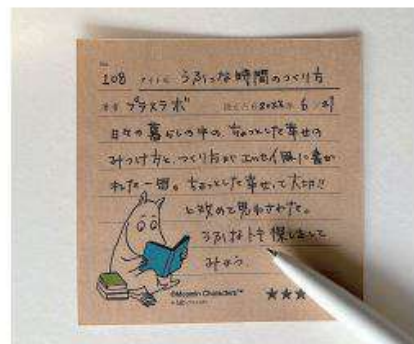 No.
108 タイトル うふっな時間のつくり方
著者 プラスラボ 読んだ日 2022年 6/21
日々の暮らしの中の、ちょっとした幸せの
みつけ方と、つくり方がエッセイ風に書か
れた一冊。ちょっとした幸せって大切!!
と改めて思わされた。
うふなトキ探しをして
みよう
©Moomin Characters™
★★★